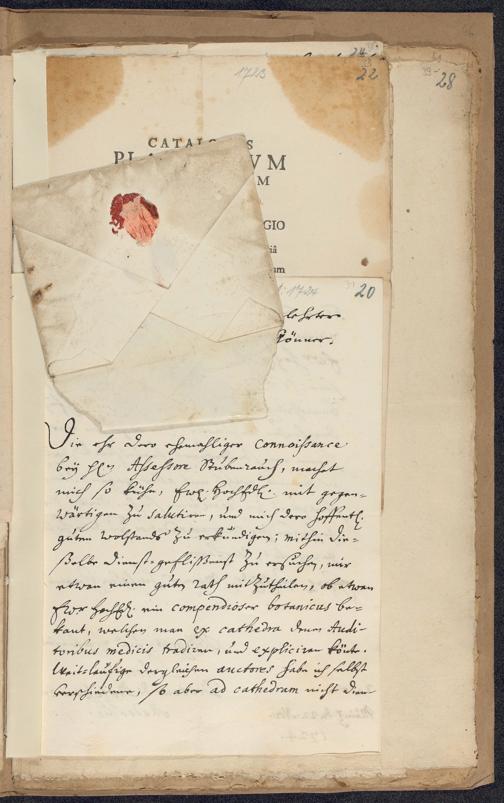 24
1723
22
28
CATALOGUS
VM
M
GIO
iâ
um
1724
20
lehrter
Gönner.
Die ehr dero ehemahliger Connoissance
bey H. Assessore Stubenrauch, machet
mich so kühn, Ewr. HochEdl. mit gegen-
wärtigen zu salutiren, und mich dero hoffentl.
guten wolstands zu erkundigen; mithin die-
selbe dienst-geflissenst zu ersuchen, mir
etwan einen guten rath mitzutheilen, ob etwan
Ewr HochEdl. ein compendiöser botanicus be-
kant, welchen man ex cathedra denen Audi-
toribus medicis tradiren, und expliciren könte.
Weitläufige dergleichen auctores habe ich selbst
verschiedene, so aber ad cathedram nicht dien